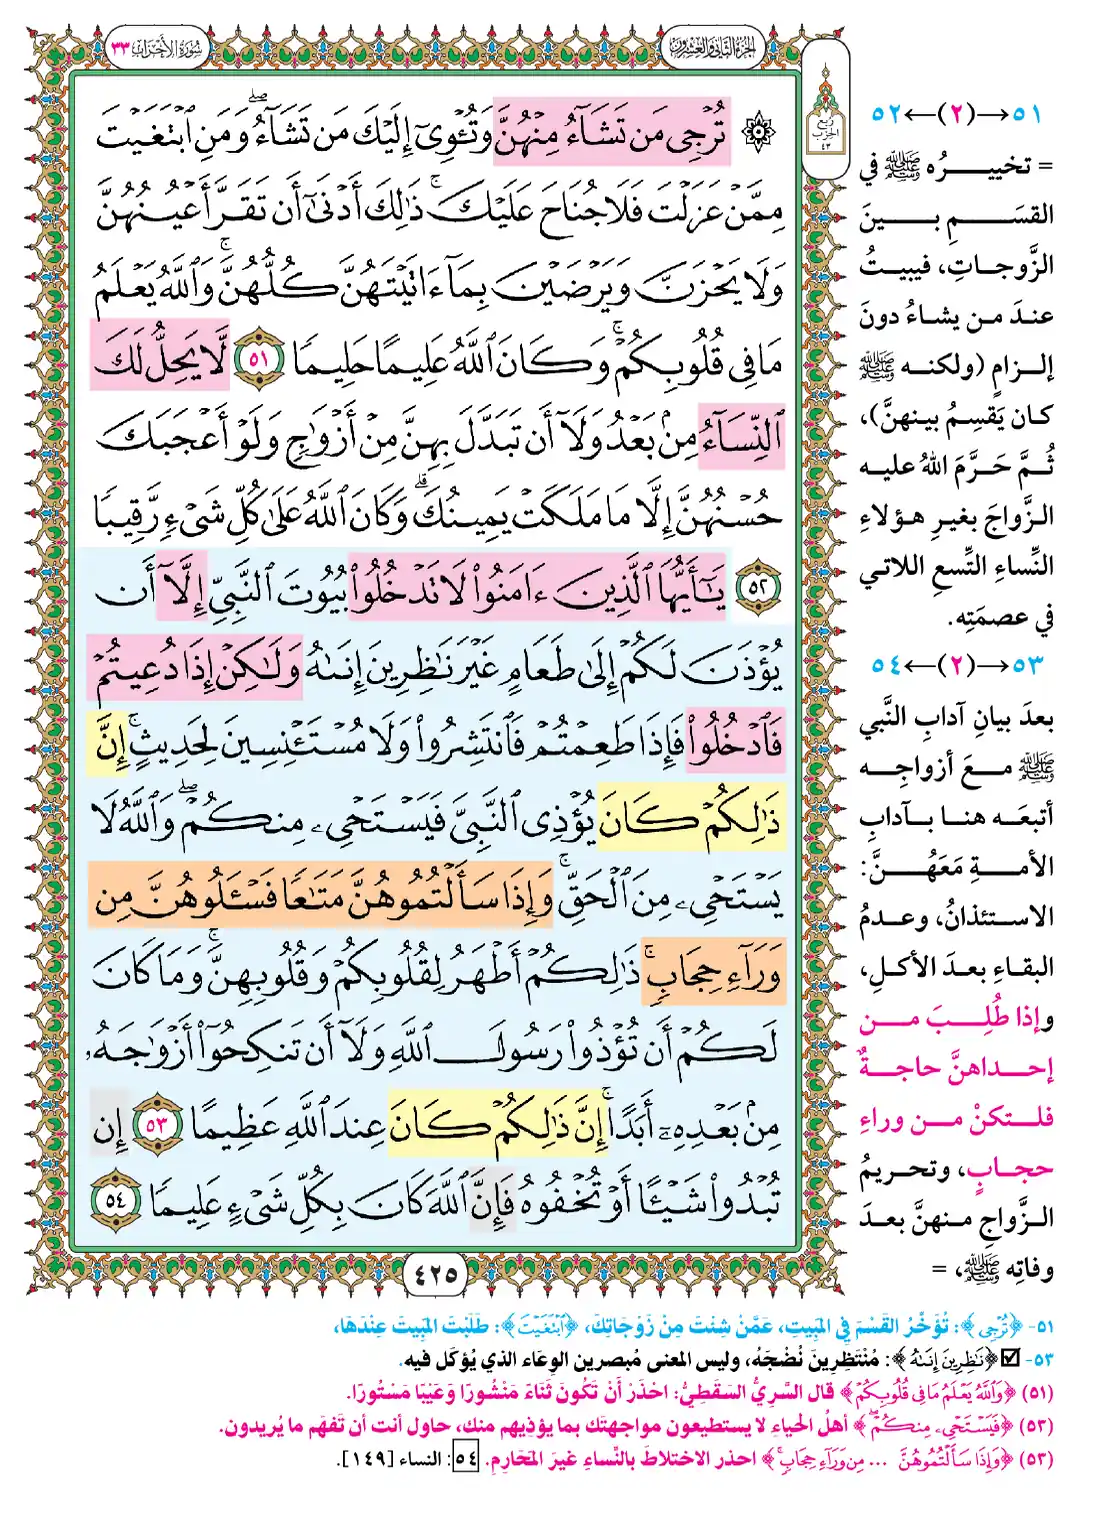 سُورَةُ الأَحْزَابِ ٣٣
الجُزْءُ الثَّانِي وَالعِشْرُونَ
رُبْع
الحِزْب
٤٣
۞ تُرْجِى مَن تَشَآءُ مِنْهُنَّ وَتُـْٔوِىٓ إِلَيْكَ مَن تَشَآءُ ۖ وَمَنِ ٱبْتَغَيْتَ
مِمَّنْ عَزَلْتَ فَلَا جُنَاحَ عَلَيْكَ ۚ ذَٰلِكَ أَدْنَىٰٓ أَن تَقَرَّ أَعْيُنُهُنَّ
وَلَا يَحْزَنَّ وَيَرْضَيْنَ بِمَآ ءَاتَيْتَهُنَّ كُلُّهُنَّ ۚ وَٱللَّهُ يَعْلَمُ
مَا فِى قُلُوبِكُمْ ۚ وَكَانَ ٱللَّهُ عَلِيمًا حَلِيمًا ٥١ لَّا يَحِلُّ لَكَ
ٱلنِّسَآءُ مِنۢ بَعْدُ وَلَآ أَن تَبَدَّلَ بِهِنَّ مِنْ أَزْوَٰجٍ وَلَوْ أَعْجَبَكَ
حُسْنُهُنَّ إِلَّا مَا مَلَكَتْ يَمِينُكَ ۗ وَكَانَ ٱللَّهُ عَلَىٰ كُلِّ شَىْءٍ رَّقِيبًا
٥٢ يَـٰٓأَيُّهَا ٱلَّذِينَ ءَامَنُوا۟ لَا تَدْخُلُوا۟ بُيُوتَ ٱلنَّبِىِّ إِلَّآ أَن
يُؤْذَنَ لَكُمْ إِلَىٰ طَعَامٍ غَيْرَ نَـٰظِرِينَ إِنَىٰهُ وَلَـٰكِنْ إِذَا دُعِيتُمْ
فَٱدْخُلُوا۟ فَإِذَا طَعِمْتُمْ فَٱنتَشِرُوا۟ وَلَا مُسْتَـْٔنِسِينَ لِحَدِيثٍ ۚ إِنَّ
ذَٰلِكُمْ كَانَ يُؤْذِى ٱلنَّبِىَّ فَيَسْتَحْىِۦ مِنكُمْ ۖ وَٱللَّهُ لَا
يَسْتَحْىِۦ مِنَ ٱلْحَقِّ ۚ وَإِذَا سَأَلْتُمُوهُنَّ مَتَـٰعًا فَسْـَٔلُوهُنَّ مِن
وَرَآءِ حِجَابٍ ۚ ذَٰلِكُمْ أَطْهَرُ لِقُلُوبِكُمْ وَقُلُوبِهِنَّ ۚ وَمَا كَانَ
لَكُمْ أَن تُؤْذُوا۟ رَسُولَ ٱللَّهِ وَلَآ أَن تَنكِحُوٓا۟ أَزْوَٰجَهُۥ
مِنۢ بَعْدِهِۦٓ أَبَدًا ۚ إِنَّ ذَٰلِكُمْ كَانَ عِندَ ٱللَّهِ عَظِيمًا ٥٣ إِن
تُبْدُوا۟ شَيْـًٔا أَوْ تُخْفُوهُ فَإِنَّ ٱللَّهَ كَانَ بِكُلِّ شَىْءٍ عَلِيمًا ٥٤
٤٢٥
٥١→(٢)←٥٢
= تخييـــرُه ﷺ في
القسَــمِ بـيــنَ
الزَّوجـاتِ، فيبيـتُ
عنـدَ مـن يشـاءُ دونَ
إلـزامٍ (ولكنـه ﷺ
كـان يَقسِـمُ بينهنَّ)،
ثُـمَّ حَـرَّمَ اللهُ عليـه
الـزَّواجَ بغيـرِ هـؤلاءِ
النِّساءِ التِّسعِ اللاتـي
في عصمَتِه.
٥٣→(٢)←٥٤
بعدَ بيانِ آدابِ النَّبي
ﷺ مـعَ أزواجِـه
أتبعَـه هنـا بـآدابِ
الأمـةِ مَعَهُـنَّ:
الاستئذانُ، وعـدمُ
البقاءِ بعـدَ الأكـلِ،
وإذا طُلِـبَ مـن
إحـداهنَّ حاجـةٌ
فلـتكنْ مـن وراءِ
حجـابٍ، وتحريـمُ
الـزَّواجِ منهنَّ بعـدَ
وفاتِه ﷺ، =
٥١- ﴿تُرْجِى﴾: تُؤَخِّرُ القَسْمَ فِي المَبِيتِ، عَمَّنْ شِئْتَ مِنْ زَوْجَاتِكَ، ﴿ٱبْتَغَيْتَ﴾: طَلَبْتَ المَبِيتَ عِنْدَهَا،
٥٣- ☑ ﴿نَـٰظِرِينَ إِنَىٰهُ﴾: مُنْتَظِرِينَ نُضْجَهُ، وليس المعنى مُبصرين الوِعَاء الذي يُؤكل فيه.
(٥١) ﴿وَٱللَّهُ يَعْلَمُ مَا فِى قُلُوبِكُمْ﴾ قال السَّرِيُّ السَّقَطِيُّ: احْذَرْ أَنْ تَكُونَ ثَنَاءً مَنْشُورًا وَعَيْبًا مَسْتُورًا.
(٥٣) ﴿فَيَسْتَحْىِۦ مِنكُمْ﴾ أهلُ الحياءِ لا يستطيعون مواجهتَك بما يؤذيهم منك، حاول أنت أن تَفهَم ما يُريدون.
(٥٣) ﴿وَإِذَا سَأَلْتُمُوهُنَّ ... مِن وَرَآءِ حِجَابٍ﴾ احذر الاختلاطَ بالنِّساءِ غيرَ المَحَارِمِ. ٥٤: النساء [١٤٩].